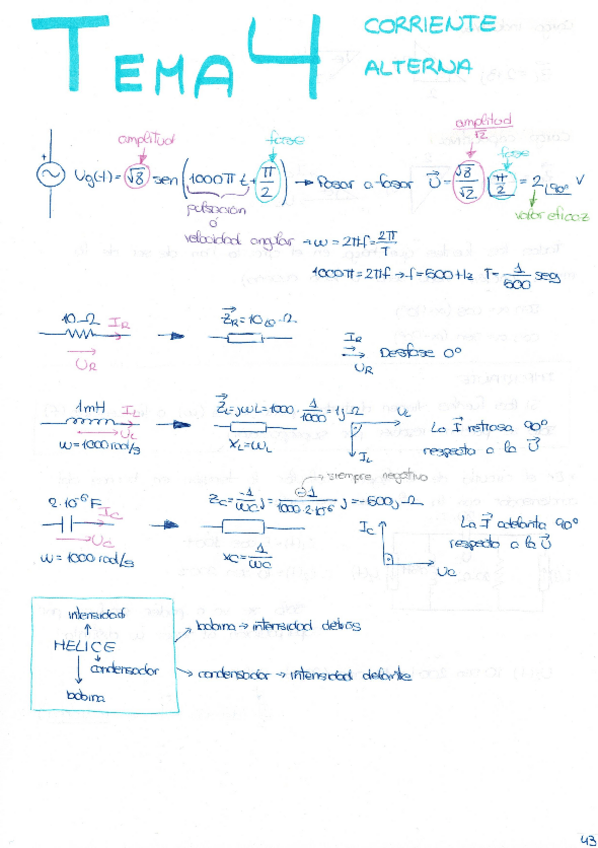 TEMA 4
CORRIENTE
ALTERNA
amplitud
fase
amplitud
√2
fase
Ug(t) = √8 sen (1000π t + π/2) → Pasar a fasor U⃗ = √8/√2 |π/2 = 2 |90° V
pulsación
ó
velocidad angular → ω = 2πf = 2π/T
valor eficaz
1000π = 2πf → f = 500 Hz T = 1/500 seg
10 Ω I_R
U_R
Z⃗_R = 10|0° Ω
I_R
U_R
Desfase 0°
1mH I_L
U_L
ω = 1000 rad/s
Z⃗_L = jωL = 1000 · 1/1000 = 1j Ω
X_L = ωL
U_L
I_L
La I⃗ retrasa 90°
respecto a la U⃗
siempre negativo
2·10⁻⁶ F
I_C
U_C
ω = 1000 rad/s
Z_C = -1/ωC j = -1/1000·2·10⁻⁶ j = -500j Ω
X_C = 1/ωC
I_C
U_C
La I⃗ adelanta 90°
respecto a la U⃗
intensidad
HELICE
condensador
bobina
bobina → intensidad detrás
condensador → intensidad delante
43